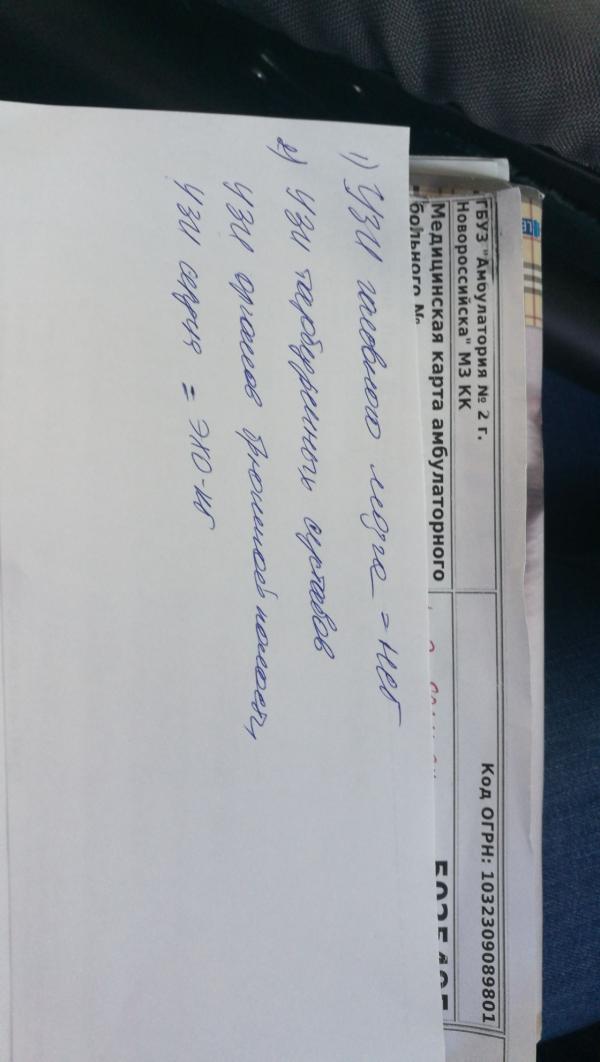 ГБУЗ "Амбулатория № 2 г.
Новороссийска" МЗ КК
Код ОГРН: 1032309089801
Медицинская карта амбулаторного
больного №
1) УЗИ головного мозга = НСГ
2) УЗИ тазобедренных суставов
УЗИ органов брюшной полости,
УЗИ сердца = ЭХО-КГ